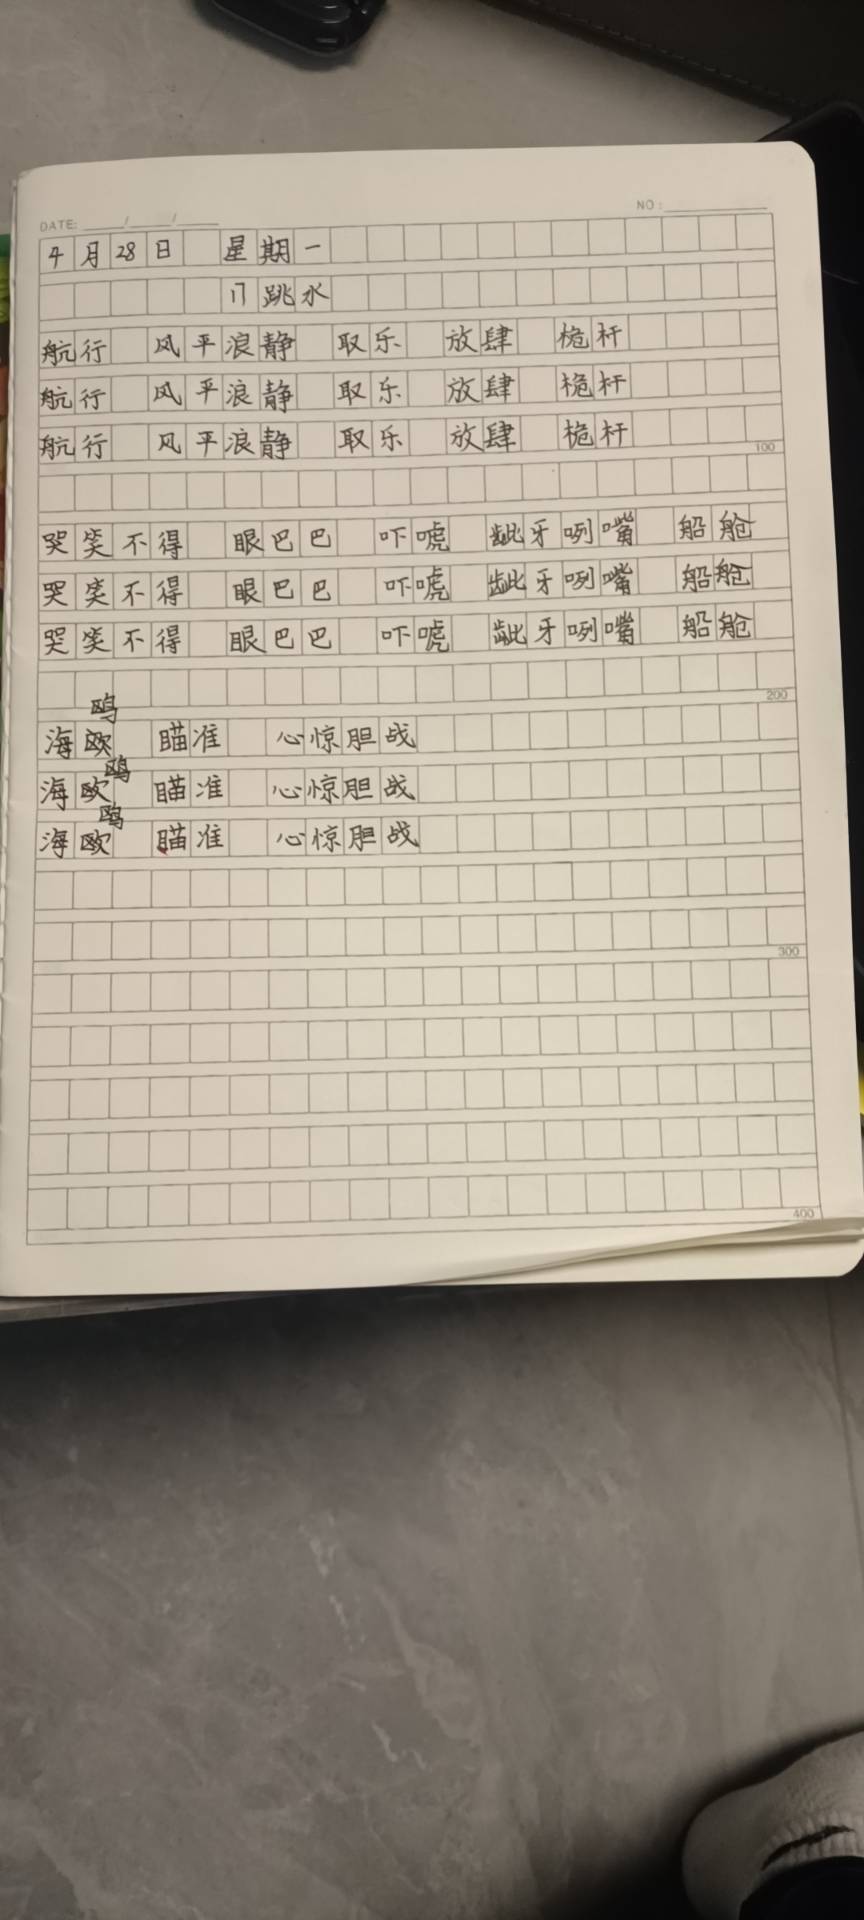 DATE: / /
NO:
4月28日 星期一
17 跳水
航行 风平浪静 取乐 放肆 桅杆
航行 风平浪静 取乐 放肆 桅杆
航行 风平浪静 取乐 放肆 桅杆
100
哭笑不得 眼巴巴 吓唬 龇牙咧嘴 船舱
哭笑不得 眼巴巴 吓唬 龇牙咧嘴 船舱
哭笑不得 眼巴巴 吓唬 龇牙咧嘴 船舱
200
鸥
海欧 瞄准 心惊胆战
鸥
海欧 瞄准 心惊胆战
鸥
海欧 瞄准 心惊胆战
300
400